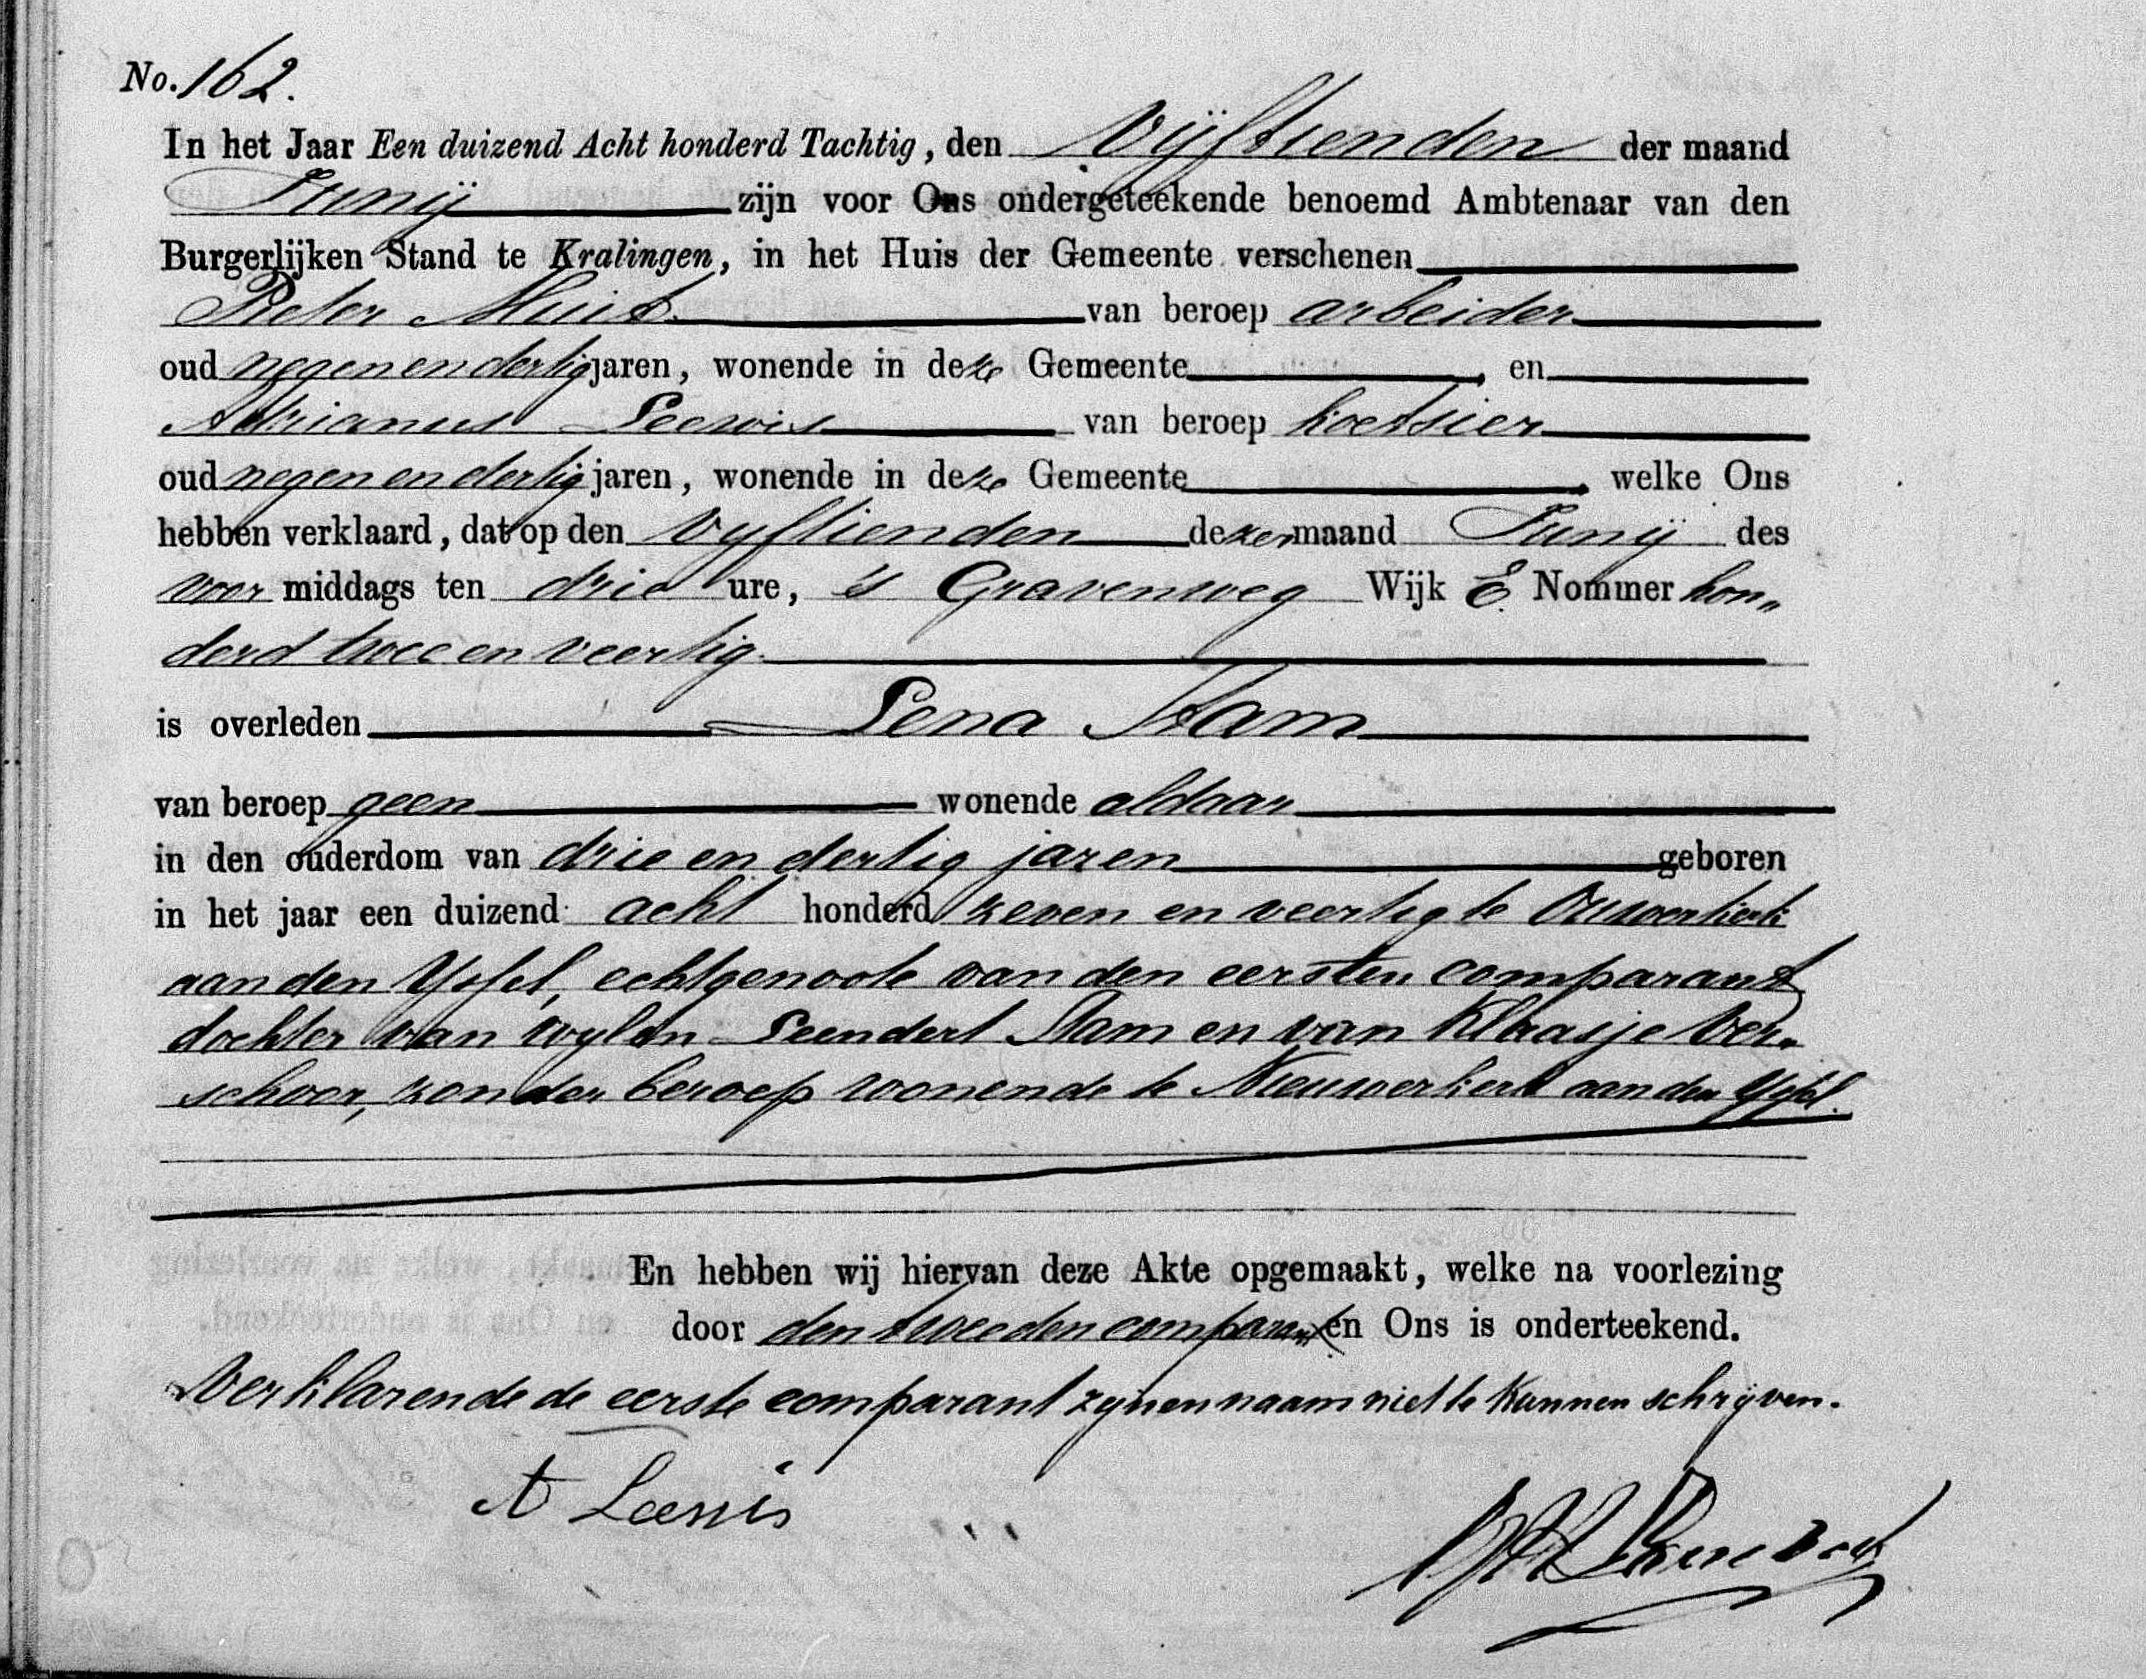 No. 162.
In het Jaar Een duizend Acht honderd Tachtig, den Vijftienden der maand
Junij zijn voor Ons ondergeteekende benoemd Ambtenaar van den
Burgerlijken Stand te Kralingen, in het Huis der Gemeente verschenen
Pieter Muit van beroep arbeider
oud negen en dertig jaren, wonende in deze Gemeente, en
Adrianus Leewis van beroep koetsier
oud negen en dertig jaren, wonende in deze Gemeente, welke Ons
hebben verklaard, dat op den vyftienden dezer maand Junij des
voor middags ten drie ure, 's Gravenweg Wijk E. Nommer hon„
derd twee en veertig.
is overleden Lena Stam
van beroep geen wonende aldaar
in den ouderdom van drie en dertig jaren geboren
in het jaar een duizend acht honderd zeven en veertig te Ouwerkerk
aan den Yssel, echtgenoote van den eersten comparant
dochter van wylen Leendert Stam en van Klaasje Ver„
schoor, zonder beroep wonende te Nieuwerkerk aan den Yssel.
En hebben wij hiervan deze Akte opgemaakt, welke na voorlezing
door den tweeden comparant en Ons is onderteekend.
Verklarende de eerste comparant zynen naam niet te kunnen schrijven.
A Leewis